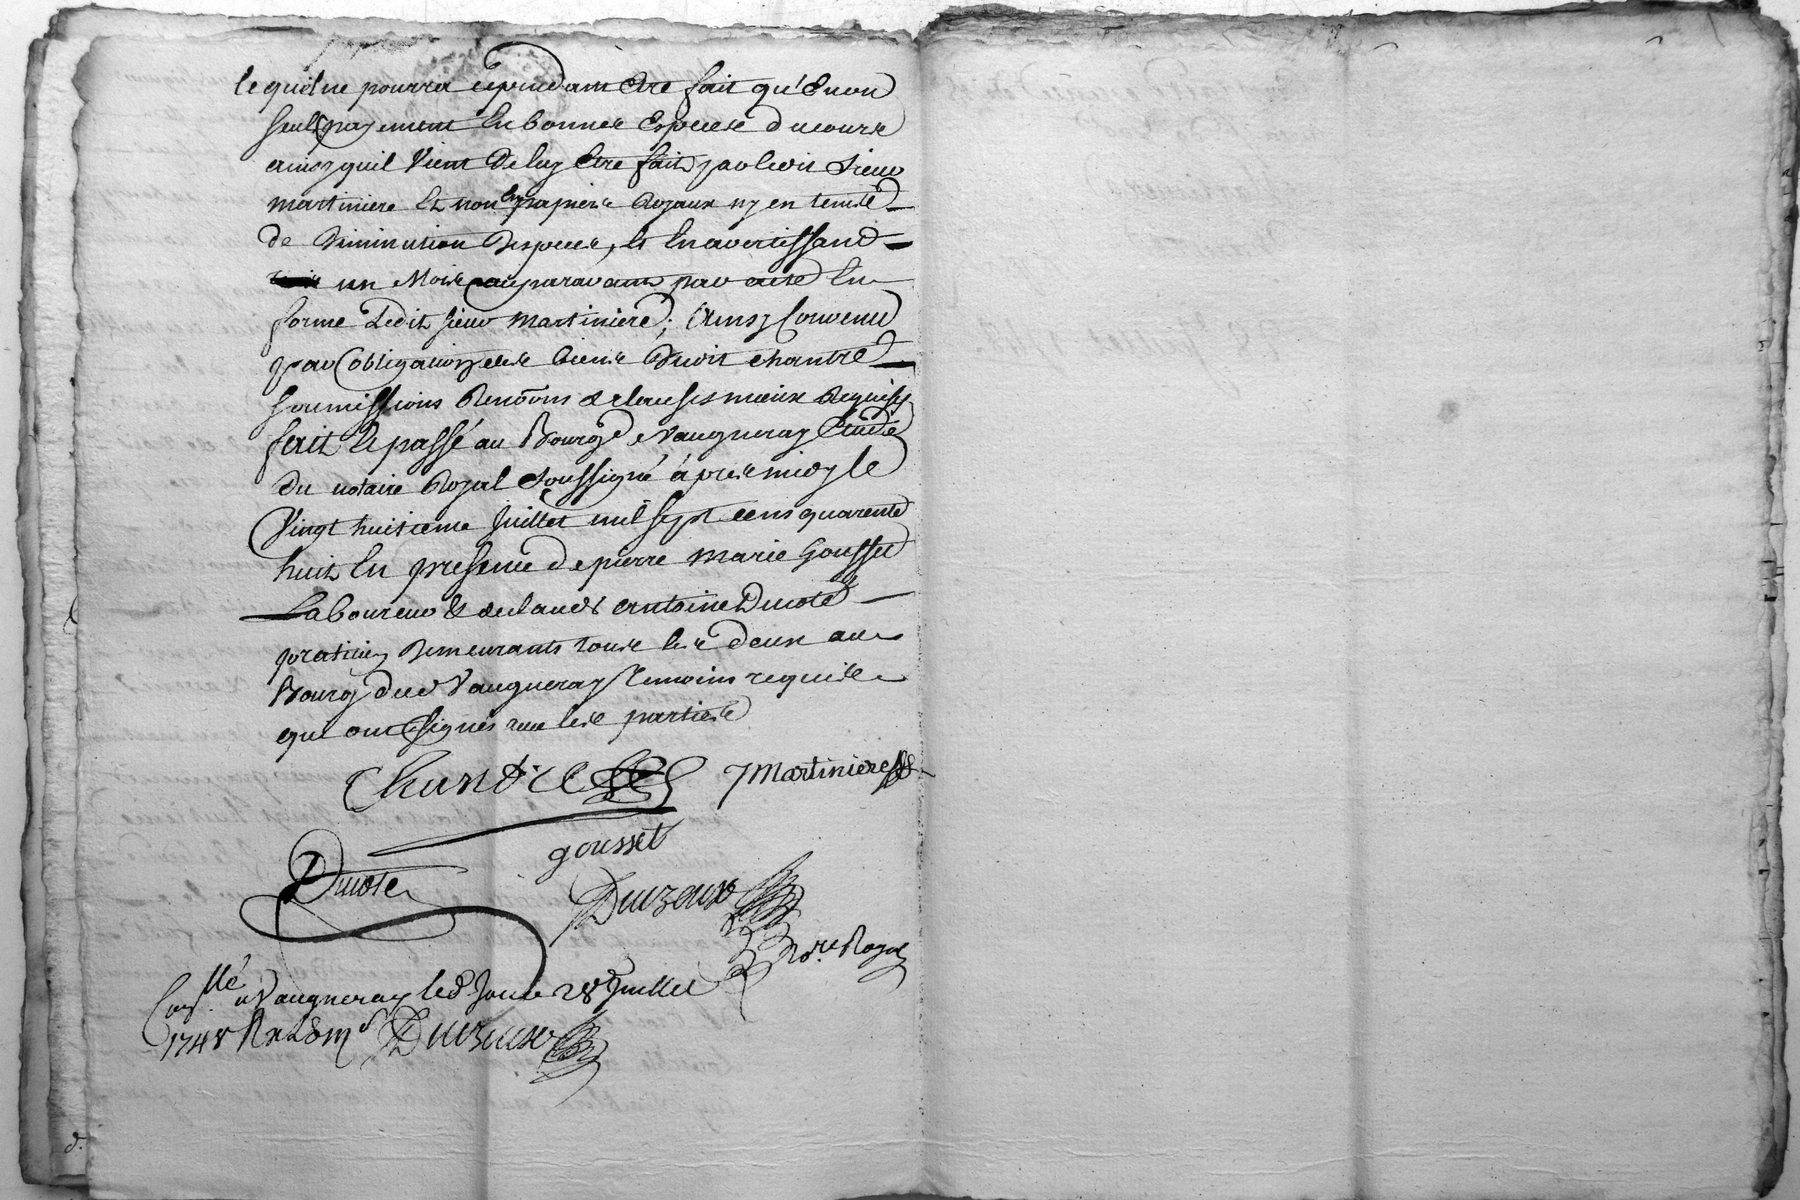 ce quil ne pourra cependant Etre fait qu'En un
seul payement En bonnes Especes du cours
ainsy quil Vient de luy Etre fait par ledit Sieur
martiniere Et non En papiers Royaux ny en temps
de diminution despeces, Et En avertissant
un Mois auparavant par acte En
forme Ledit sieur martiniere; Ainsy Convenu
par Obligations des biens dudit chantre
soumissions Renõons & clauses mieux Requises
fait Et passé au Bourg de Vaugneray Etude
du notaire Royal soussigné après midy le
Vingt huitieme juillet mil sept cens quarente
huit En presence de pierre marie Gousset
Laboureur & de claude antoine Ducote
praticien demeurants tous les deux au
Bourg dud Vaugneray temoins requis
qui ont signés avec les parties
Chantre J Martiniere
gousset
Ducote
Duizeux
Nore. Royal
Conllé a Vaugneray led Jour 28 Juillet
1748 Duizeux